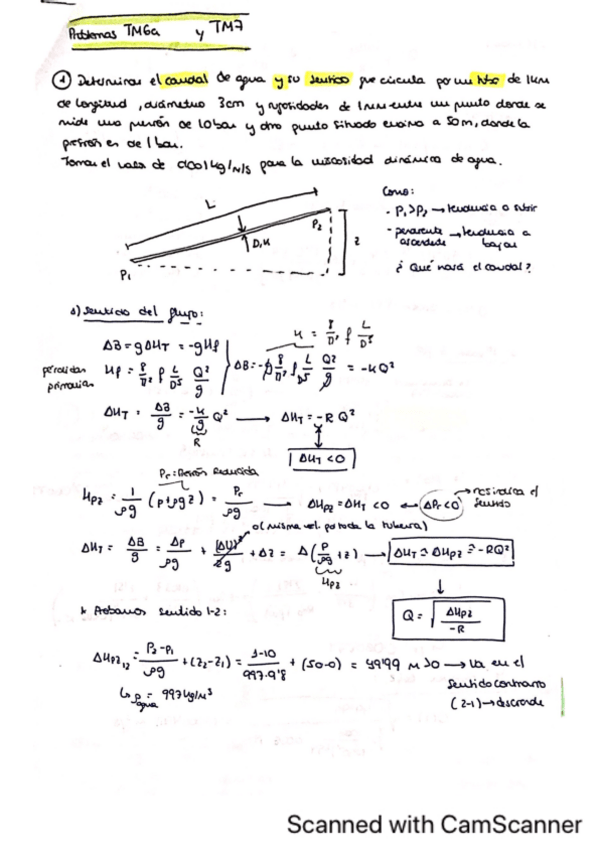 Problemas TM6a y TM7
① Determinar el caudal de agua y su sentido que circula por un tubo de 1km
de longitud, diámetro 3cm y rugosidades de 1mm entre un punto donde se
mide una presión de 10bar y otro punto situado encima a 50m, donde la
presión es de 1 bar.
Tomar el valor de 0'001 kg/m/s para la viscosidad dinámica de agua.
L
D, K
P₁
P₂
z
Como:
- P₁>P₂ → tendencia a subir
- pendiente ascendente → tendencia a bajar
¿Qué hará el caudal?
a) Sentido del flujo:
ΔB = gΔH_T = -gH_f
pérdidas primarias
ΔH_T = ΔB/g = -K/g Q² → ΔH_T = -R Q²
R
ΔH_T < 0
Pr: Presión Reducida
H_pz = 1/ρg (p+ρgz) = Pr/ρg → ΔH_pz = ΔH_T < 0 ↔ ΔPr < 0 → nos indica el sentido
0 (misma vel. por toda la tubería)
ΔH_T = ΔB/g = Δp/ρg + (ΔU)²/2g + Δz = Δ(p/ρg + z) → ΔH_T ≃ ΔH_pz = -RQ²
H_pz
Q = √(ΔH_pz/-R)
* Probamos sentido 1-2:
ΔH_pz₁₂ = (P₂-P₁)/ρg + (z₂-z₁) = (1-10)/(997·9'8) + (50-0) = 49'99 m > 0 → Va en el
sentido contrario
(2-1) → desciende
↳ ρ agua = 997 kg/m³
Scanned with CamScanner